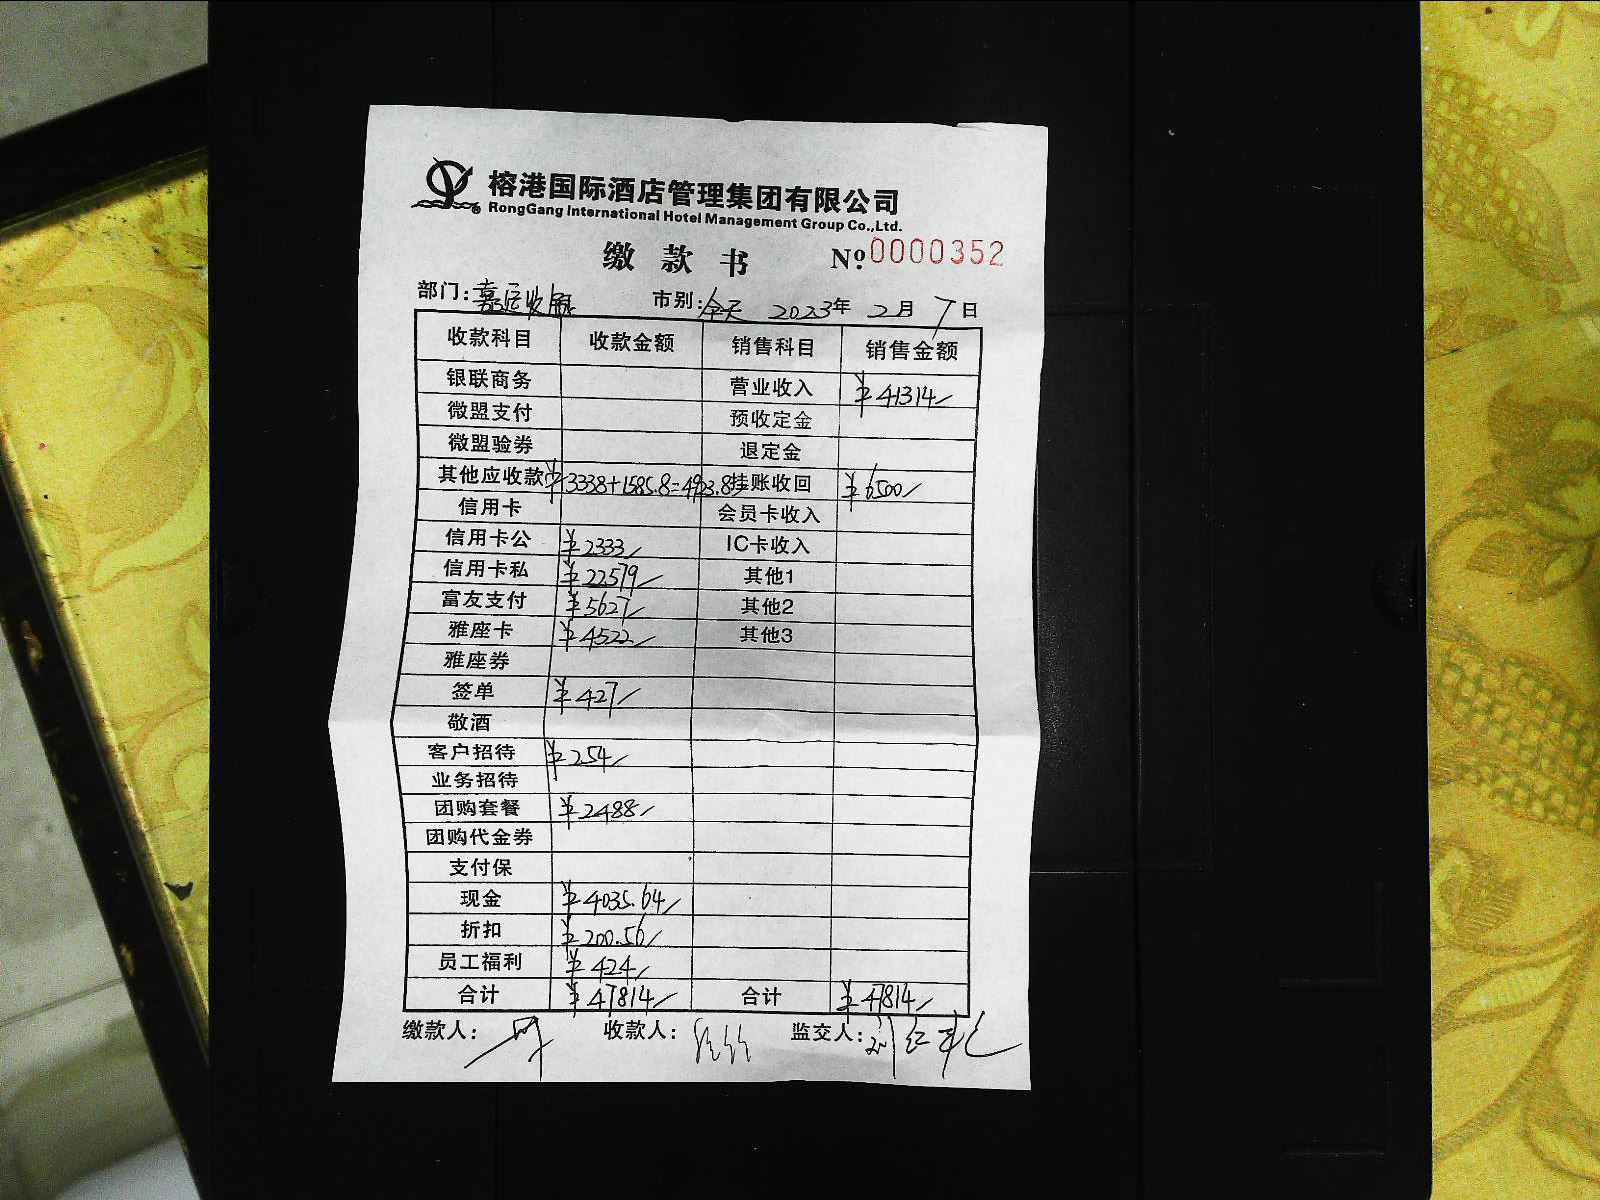 榕港国际酒店管理集团有限公司
RongGang International Hotel Management Group Co.,Ltd.
缴 款 书 Nº 0000352
部门: 嘉运收 市别: 全天 2023年 2月 7日
收款科目 收款金额 销售科目 销售金额
银联商务 营业收入 ¥41314/
微盟支付 预收定金
微盟验券 退定金
其他应收款 ¥3338+1585.8=4923.8 挂账收回 ¥6500/
信用卡 会员卡收入
信用卡公 ¥2333/ IC卡收入
信用卡私 ¥22579/ 其他1
富友支付 ¥5627/ 其他2
雅座卡 ¥4522/ 其他3
雅座券
签单 ¥427/
敬酒
客户招待 ¥254/
业务招待
团购套餐 ¥2488/
团购代金券
支付保
现金 ¥4035.64/
折扣 ¥200.56/
员工福利 ¥424/
合计 ¥47814/ 合计 ¥47814/
缴款人: 收款人: 监交人: